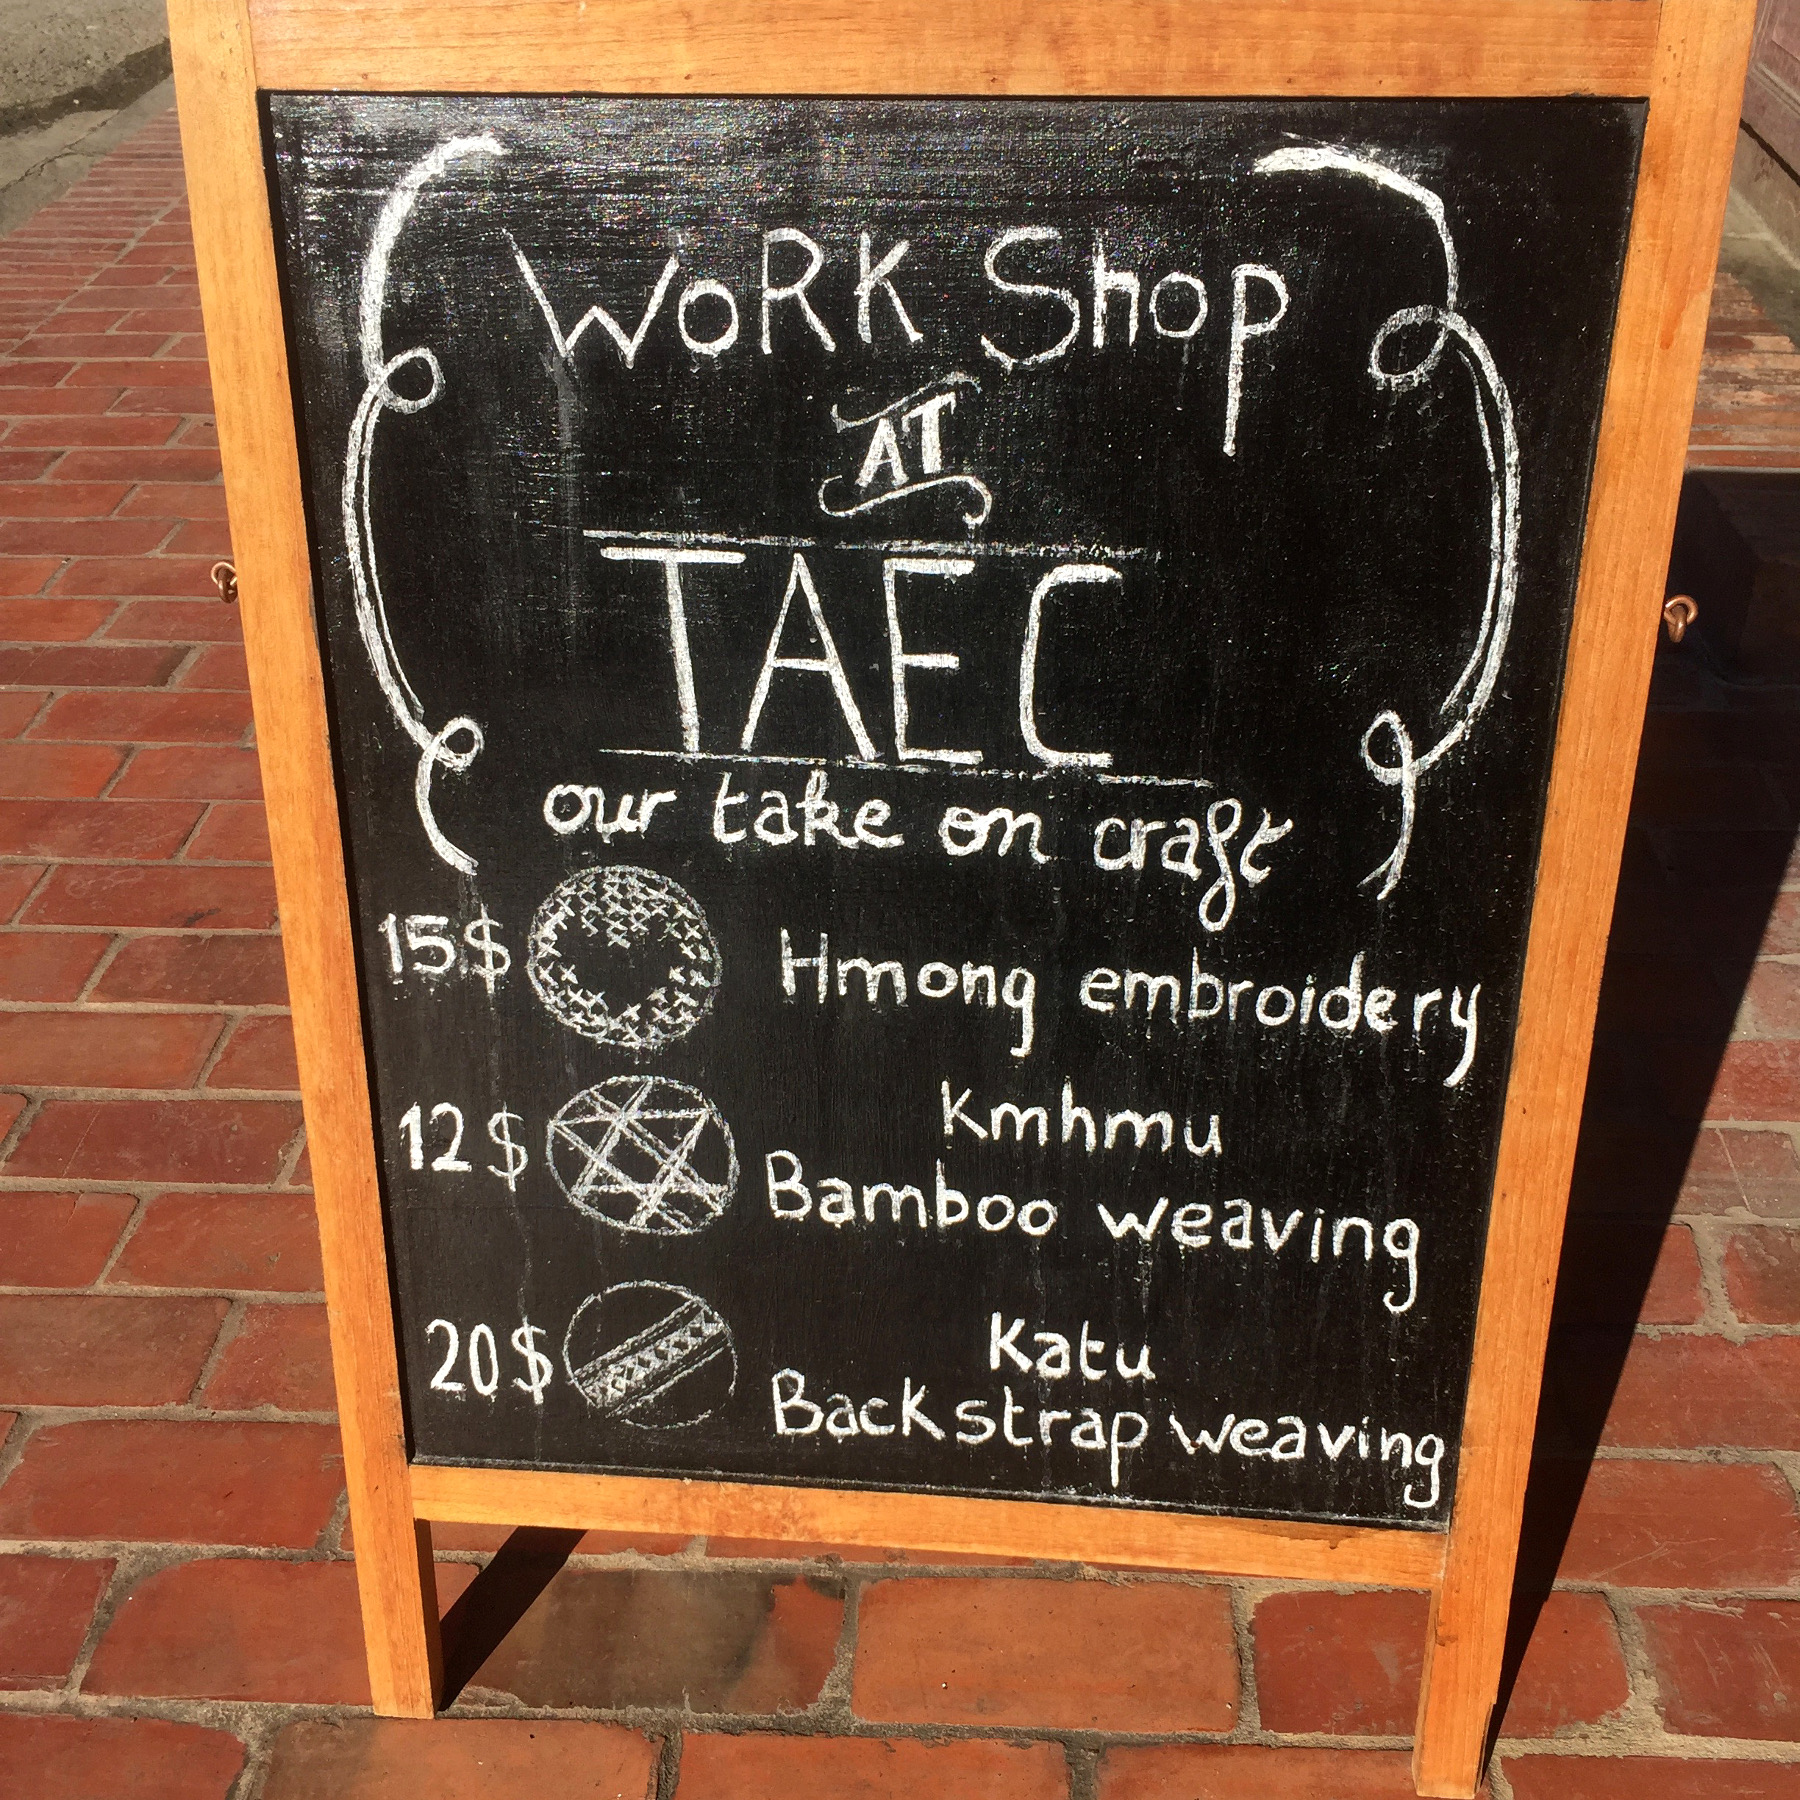 WoRK Shop
AT
TAEC
our take on craft
15$ Hmong embroidery
12$ Kmhmu
Bamboo weaving
20$ Katu
Backstrap weaving